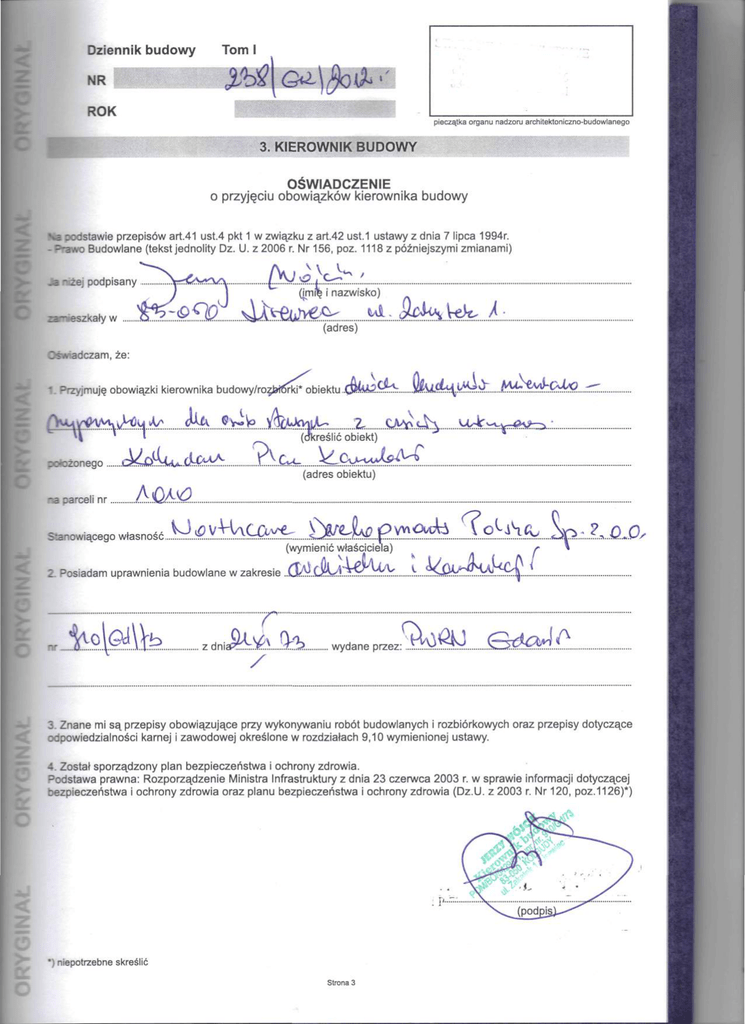 Dziennik budowy Tom I
NR 238/GK/2012r
ROK
pieczątka organu nadzoru architektoniczno-budowlanego
3. KIEROWNIK BUDOWY
OŚWIADCZENIE
o przyjęciu obowiązków kierownika budowy
Na podstawie przepisów art.41 ust.4 pkt 1 w związku z art.42 ust.1 ustawy z dnia 7 lipca 1994r.
- Prawo Budowlane (tekst jednolity Dz. U. z 2006 r. Nr 156, poz. 1118 z późniejszymi zmianami)
Ja niżej podpisany Jerzy Wójcik
(imię i nazwisko)
zamieszkały w 83-050 ul. 1.
(adres)
Oświadczam, że:
1. Przyjmuję obowiązki kierownika budowy/rozbiórki* obiektu dwóch budynków
dla osób starszych z
(określić obiekt)
położonego Plac
(adres obiektu)
na parceli nr 1010
Stanowiącego własność Northcave Developments Polska Sp. z o.o.
(wymienić właściciela)
2. Posiadam uprawnienia budowlane w zakresie architektury i konstrukcji
nr 910/Gd/73 z dnia 21 XI 73 wydane przez: PWRN Gdańsk
3. Znane mi są przepisy obowiązujące przy wykonywaniu robót budowlanych i rozbiórkowych oraz przepisy dotyczące
odpowiedzialności karnej i zawodowej określone w rozdziałach 9,10 wymienionej ustawy.
4. Został sporządzony plan bezpieczeństwa i ochrony zdrowia.
Podstawa prawna: Rozporządzenie Ministra Infrastruktury z dnia 23 czerwca 2003 r. w sprawie informacji dotyczącej
bezpieczeństwa i ochrony zdrowia oraz planu bezpieczeństwa i ochrony zdrowia (Dz.U. z 2003 r. Nr 120, poz.1126)*)
JERZY WÓJCIK
Kierownik budowy
(podpis)
*) niepotrzebne skreślić
Strona 3
ORYGINAŁ
ORYGINAŁ
ORYGINAŁ
ORYGINAŁ
ORYGINAŁ
ORYGINAŁ